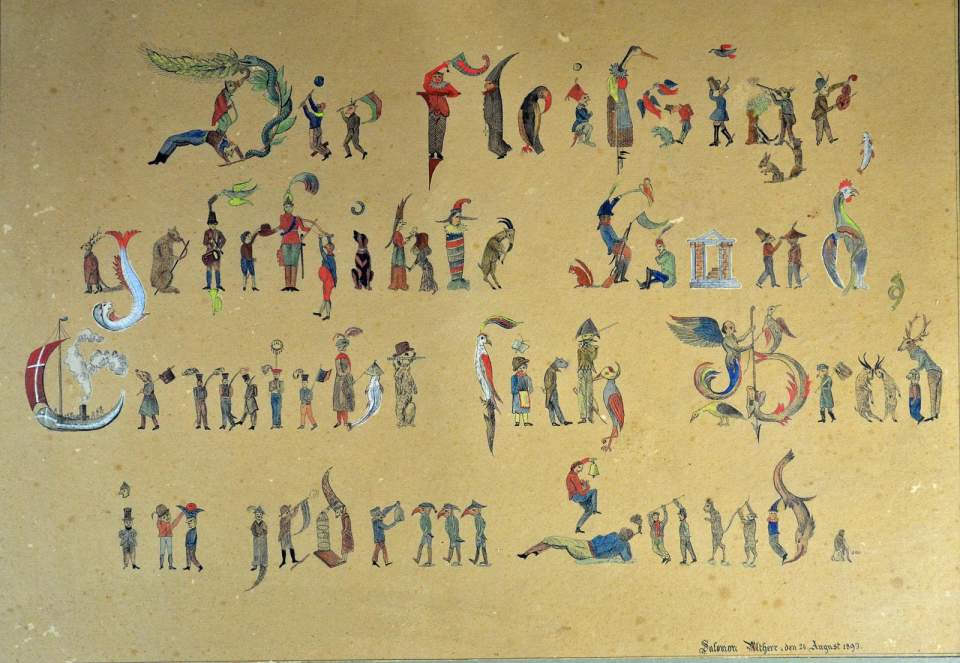 Die fleißige,
geschikte Hand,
Erwirbt sich Brod
in jedem Land.
Salomon Altherr, den August 1893.